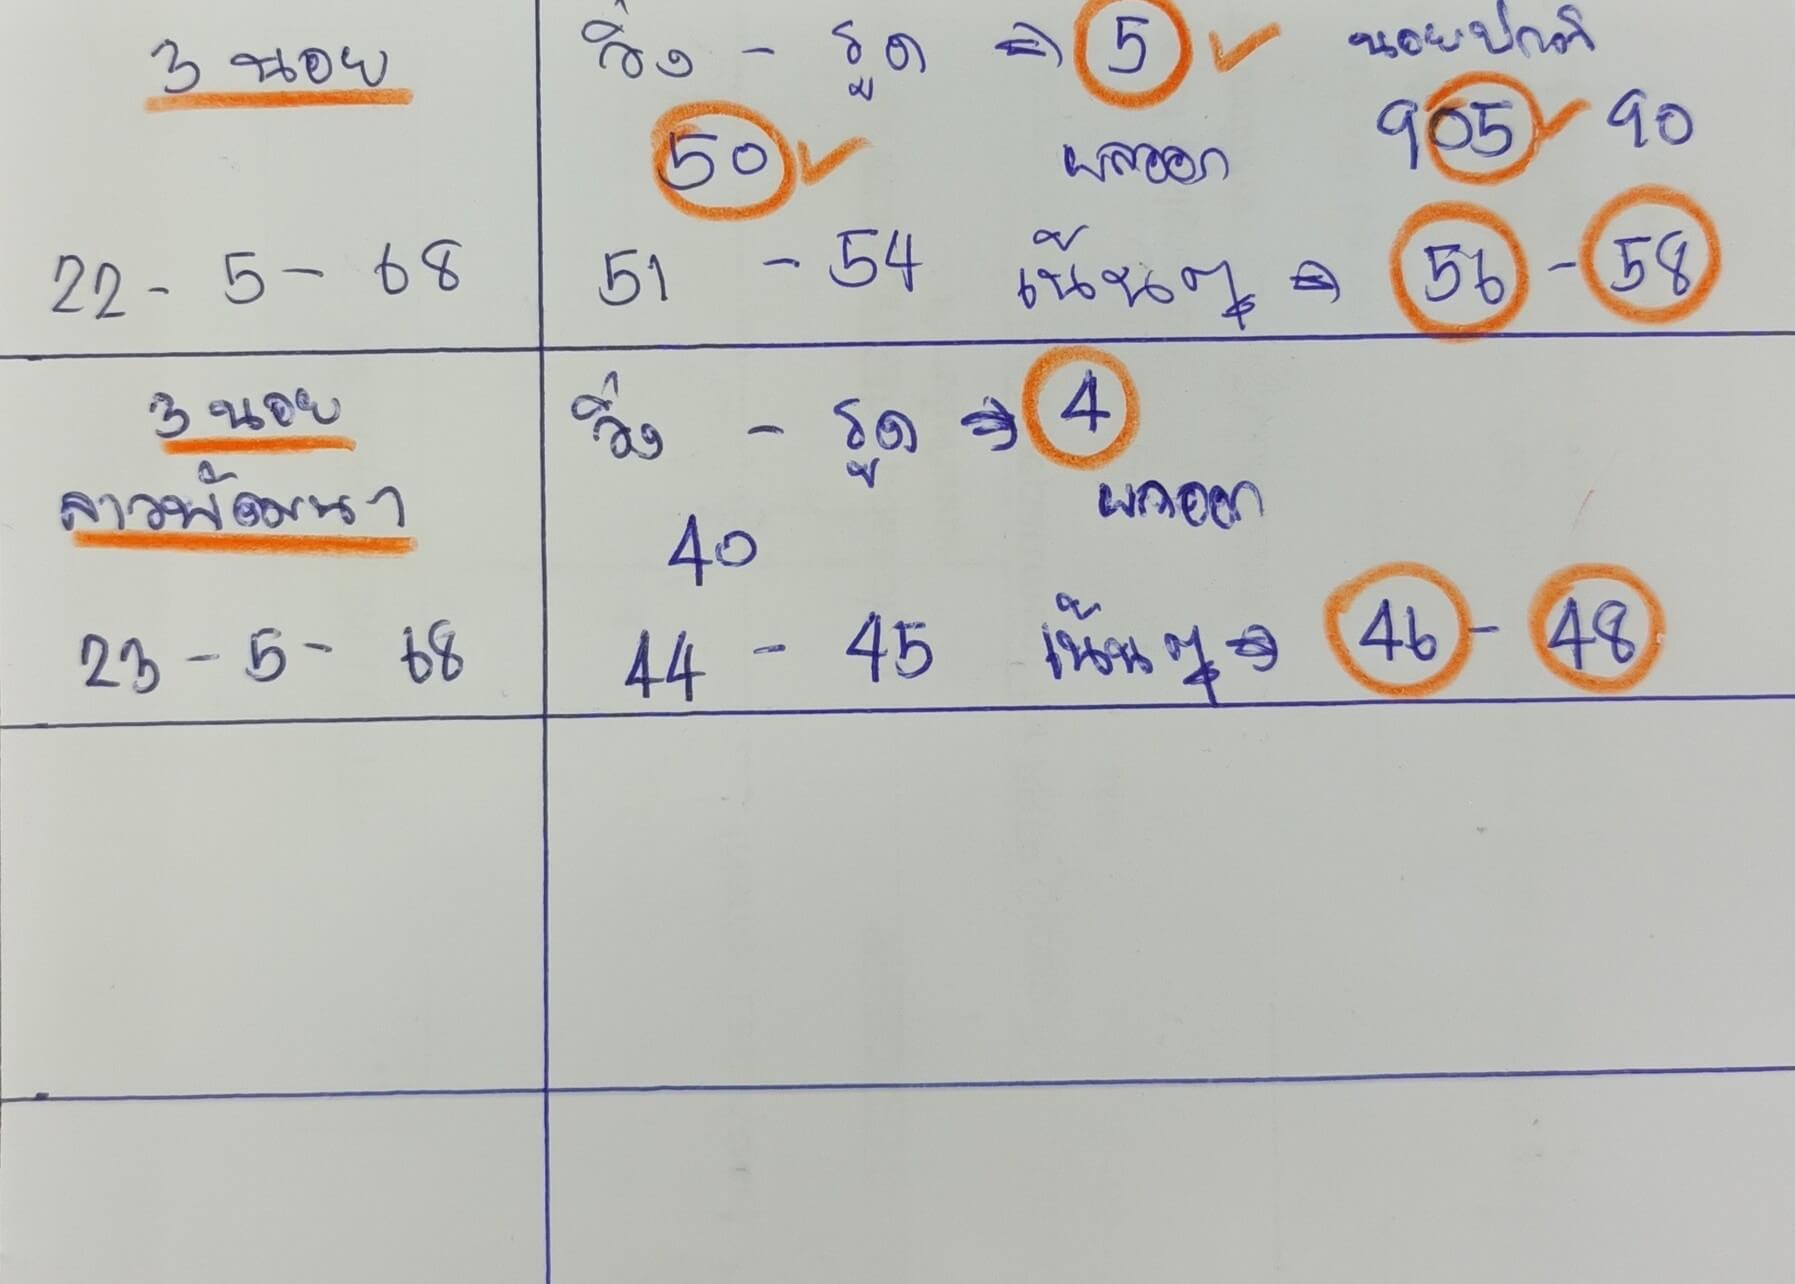 3 นอย
22 - 5 - 68
วิ่ง - รูด ⇒ 5 ✓ นอยปกติ
50 ✓ ผลออก 905 ✓ 90
51 - 54 เน้นๆ ⇒ 56 - 58
3 นอย
ลาวพัฒนา
23 - 5 - 68
วิ่ง - รูด ⇒ 4
ผลออก
40
44 - 45 เน้นๆ ⇒ 46 - 48